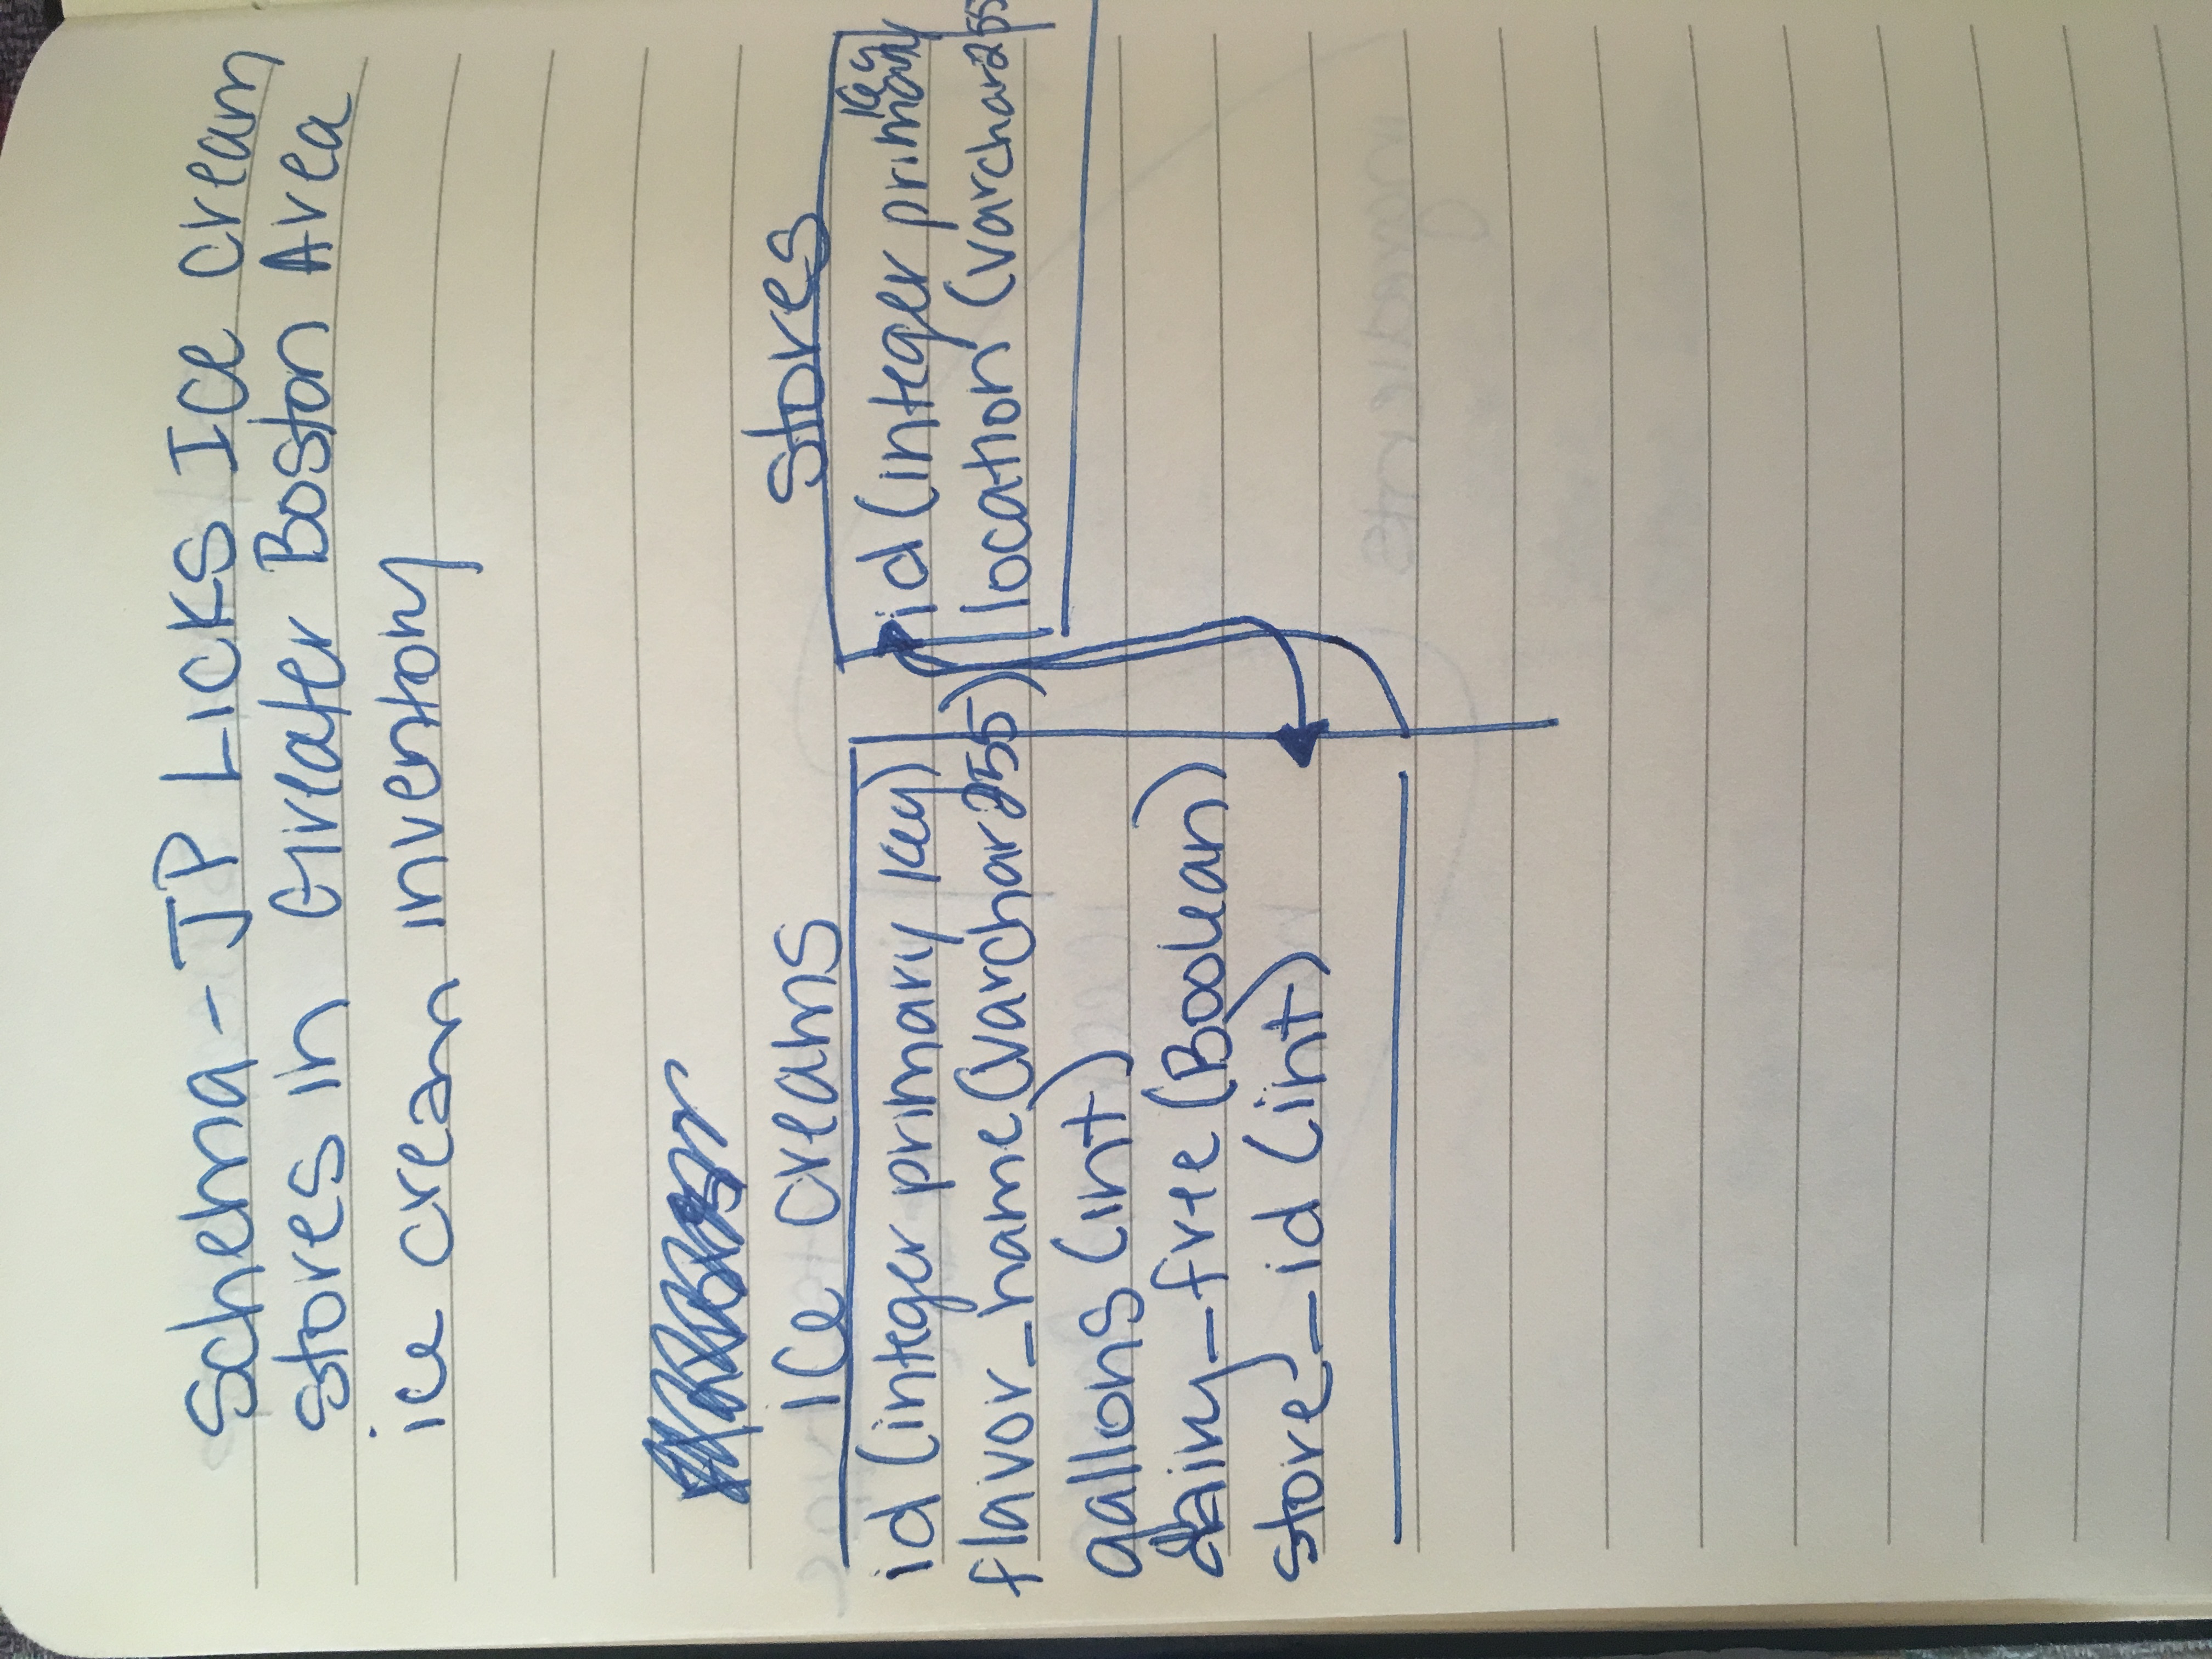 Schema - JP LICKS Ice cream
stores in Greater Boston Area
ice cream inventory
ice creams
id (integer primary key)
flavor_name (varchar 255)
gallons (int)
dairy_free (Boolean)
store_id (int)
stores
id (integer primary key
location (varchar 255
ingredients